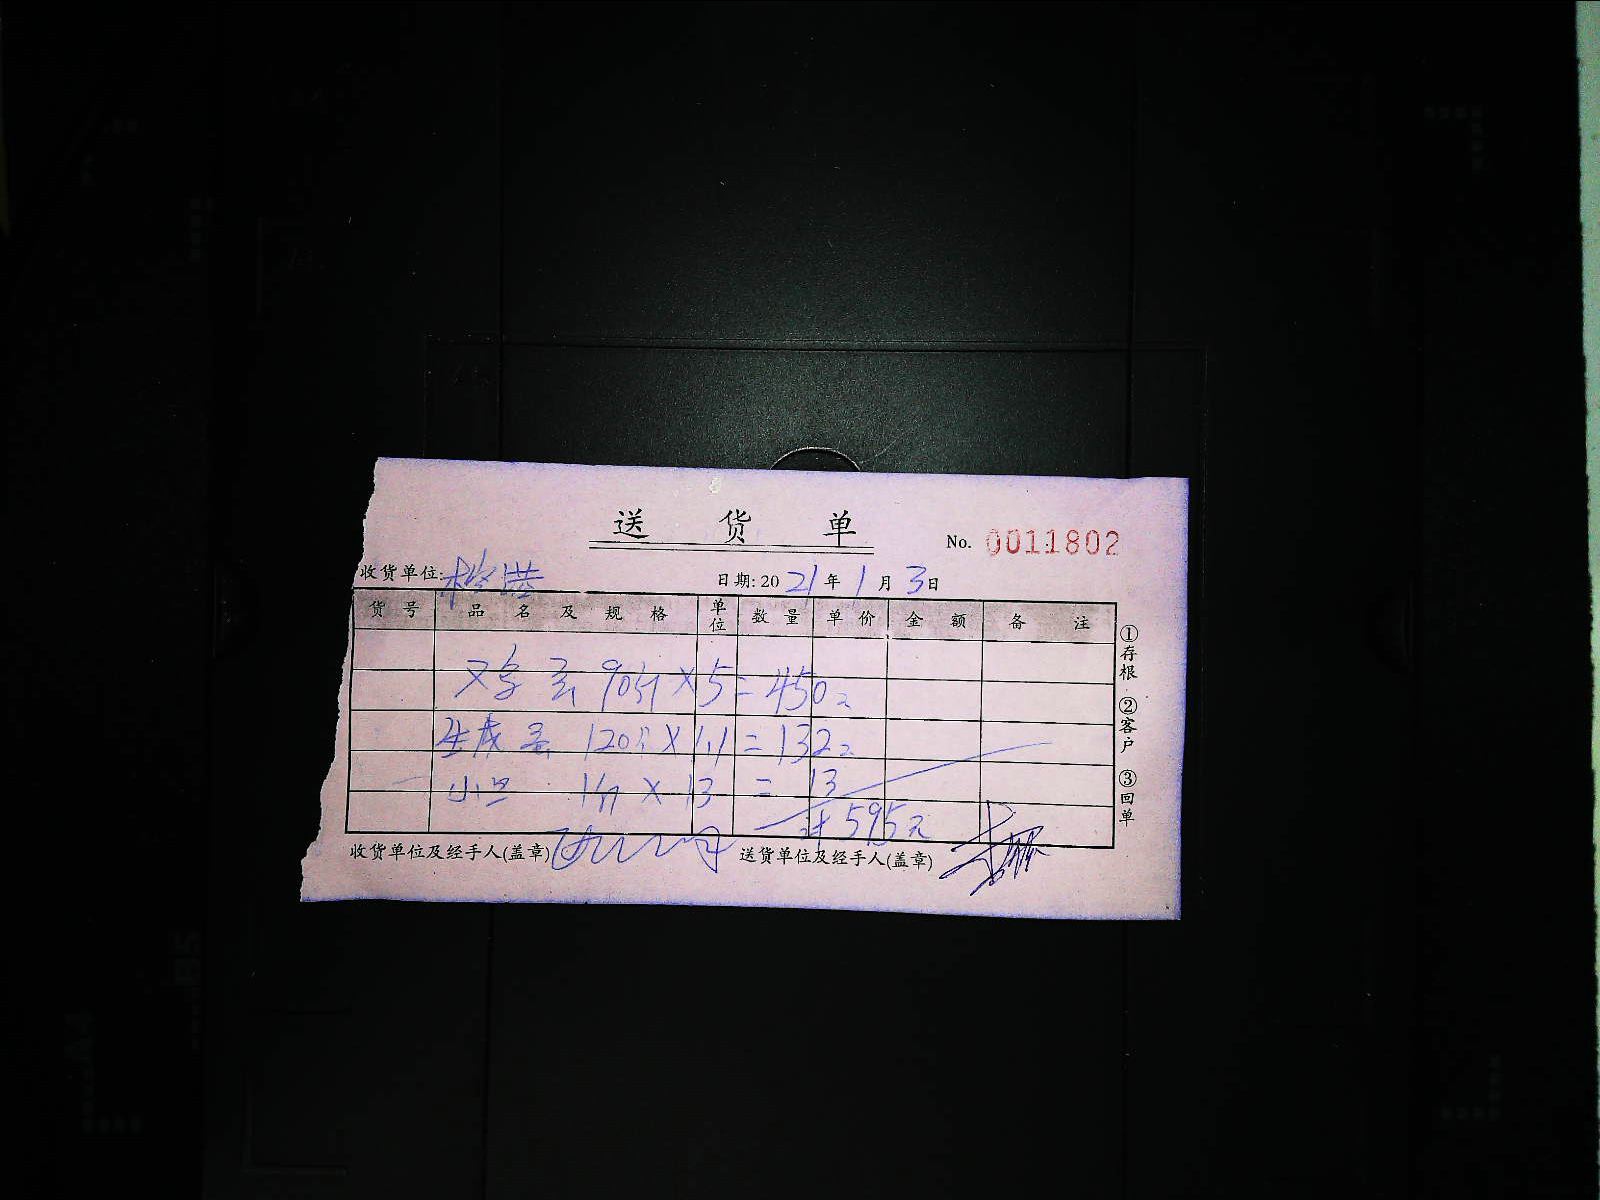 送货单
No. 0011802
收货单位:
日期: 2021年1月3日
货号 品名及规格 单位 数量 单价 金额 备注
90 × 5 = 450元
120个 × 1.1 = 132元
小 1 × 13 = 13
计595元
收货单位及经手人(盖章) 送货单位及经手人(盖章)
①存根 ②客户 ③回单